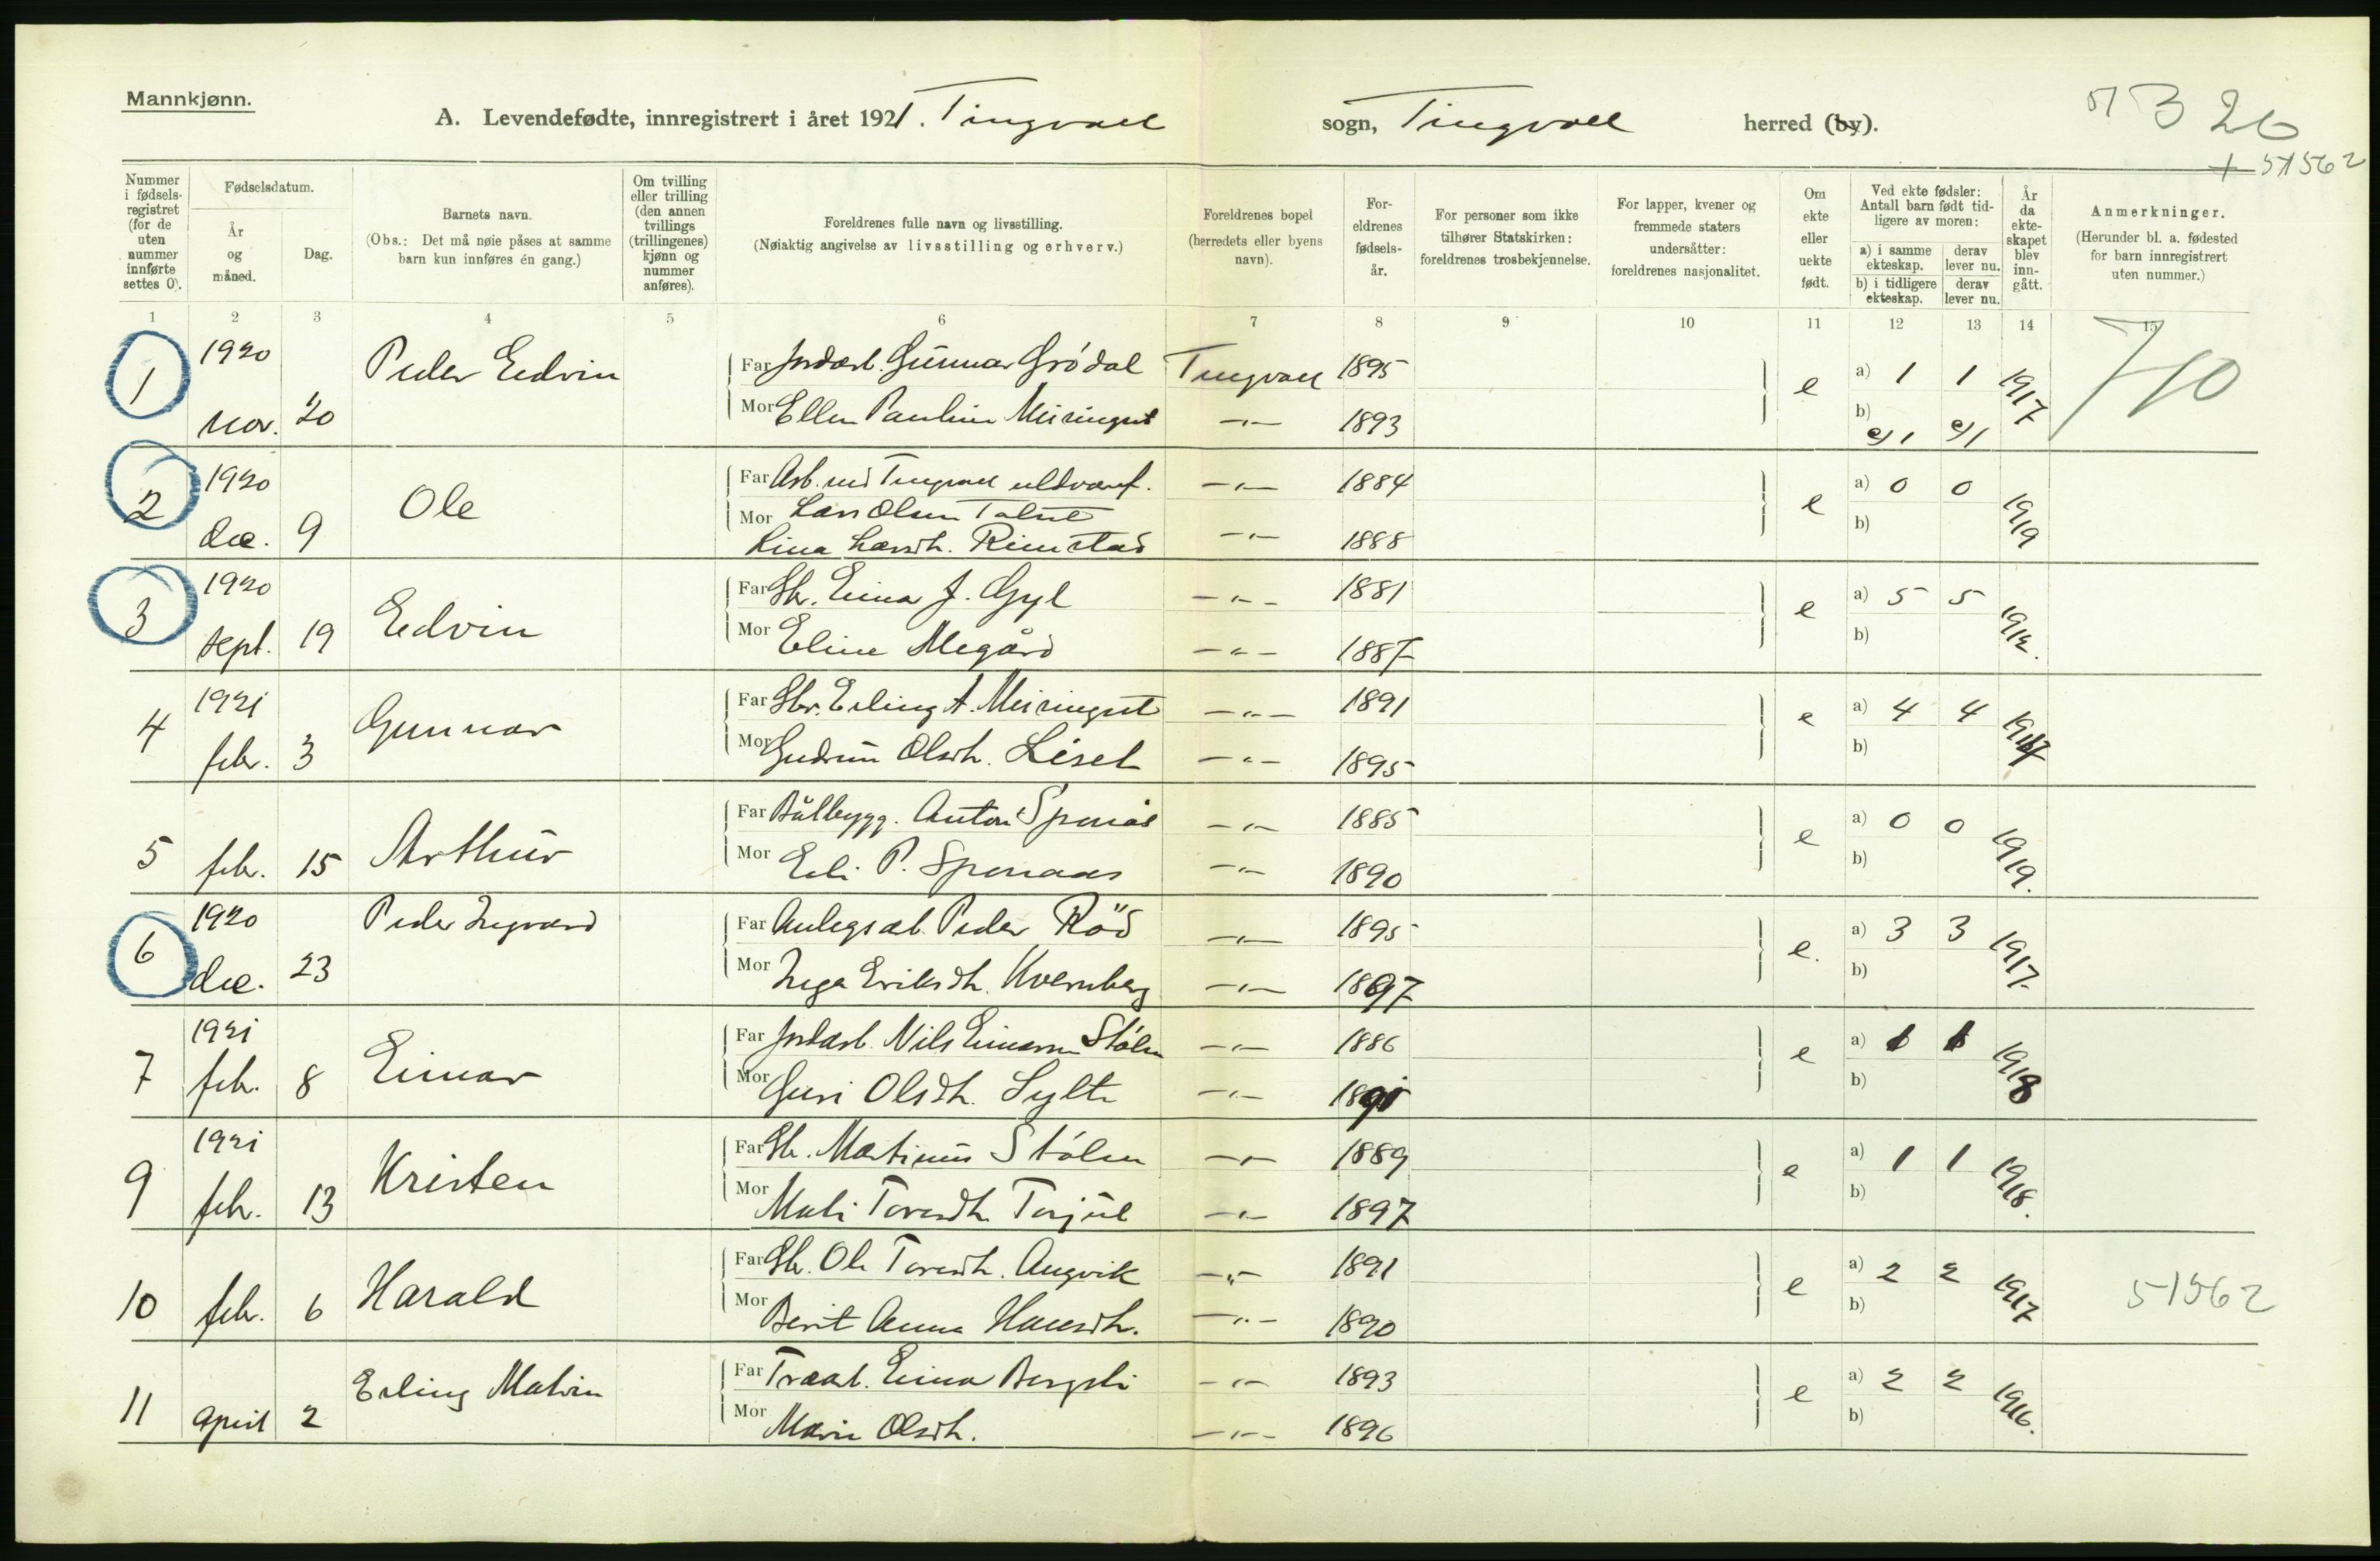 Mannkjønn.
A. Levendefødte, innregistrert i året 1921. Tingvoll sogn, Tingvoll herred (by).
Nummer i fødsels-registret (for de uten nummer innførte settes 0).
Fødselsdatum.
År og måned.
Dag.
Barnets navn.
(Obs.: Det må nøie påses at samme barn kun innføres én gang.)
Om tvilling eller trilling (den annen tvillings (trillingenes) kjønn og nummer anføres).
Foreldrenes fulle navn og livsstilling.
(Nøiaktig angivelse av livsstilling og erhverv.)
Foreldrenes bopel (herredets eller byens navn).
For-eldrenes fødsels-år.
For personer som ikke tilhører Statskirken: foreldrenes trosbekjennelse.
For lapper, kvener og fremmede staters undersåtter: foreldrenes nasjonalitet.
Om ekte eller uekte født.
Ved ekte fødsler: Antall barn født tid-ligere av moren:
a) i samme ekteskap. derav lever nu.
b) i tidligere ekteskap. derav lever nu.
År da ekte-skapet blev inn-gått.
Anmerkninger.
(Herunder bl. a. fødested for barn innregistrert uten nummer.)
+ 51562
1 2 3 4 5 6 7 8 9 10 11 12 13 14 15
1 1920 nov. 20 Peder Edvin
Far Jordarb. Gunnar Grødal Tingvoll 1895
Mor Ellen Pauline Meisingset -"- 1893
e a) 1 1 1917
b)
2 1920 dec. 9 Ole
Far Arb. ved Tingvoll uldvaref. -"- 1884
Mor Lars Olsen
Lina Larsdh. Rimstad -"- 1888
e a) 0 0 1919
b)
3 1920 sept. 19 Edvin
Far Gbr. Einar J. Gyl -"- 1881
Mor Eline Megård -"- 1887
e a) 5 5 1912.
b)
4 1921 febr. 3 Gunnar
Far Gbr. Erling A. Meisingset -"- 1891
Mor Gudrun Olsdh. Liset -"- 1895
e a) 4 4
b)
5 febr. 15 Arthur
Far Båtbygg. Anton Sponås -"- 1885
Mor Eli P. Sponaas -"- 1890
e a) 0 0 1919.
b)
6 1920 dec. 23 Peder Ingvard
Far Anlegsarb. Peder Röd -"- 1895
Mor Inga Eriksdh. Kvernberg -"- 1897
e. a) 3 3 1917.
b)
7 1921 febr. 8 Einar
Far Jordarb. Nils Einarsen Stølen -"- 1886
Mor Guri Olsdh. Sylte -"- 1891
e a) 1 1 1918
b)
9 1921 febr. 13 Kristen
Far Gbr. Martinus Stølen -"- 1889
Mor Mali Toresdh. Torjul -"- 1897
e a) 1 1 1918.
b)
10 febr. 6 Harald
Far Gbr. Ole Toresdh. Angvik -"- 1891
Mor Berit Anna Hansdh. -"- 1890
e a) 2 2 1917 51562
b)
11 april 2 Erling Malvin
Far Træarb. Einar Bergsli -"- 1893
Mor Marie Olsdh. -"- 1896
e a) 2 2 1916.
b)